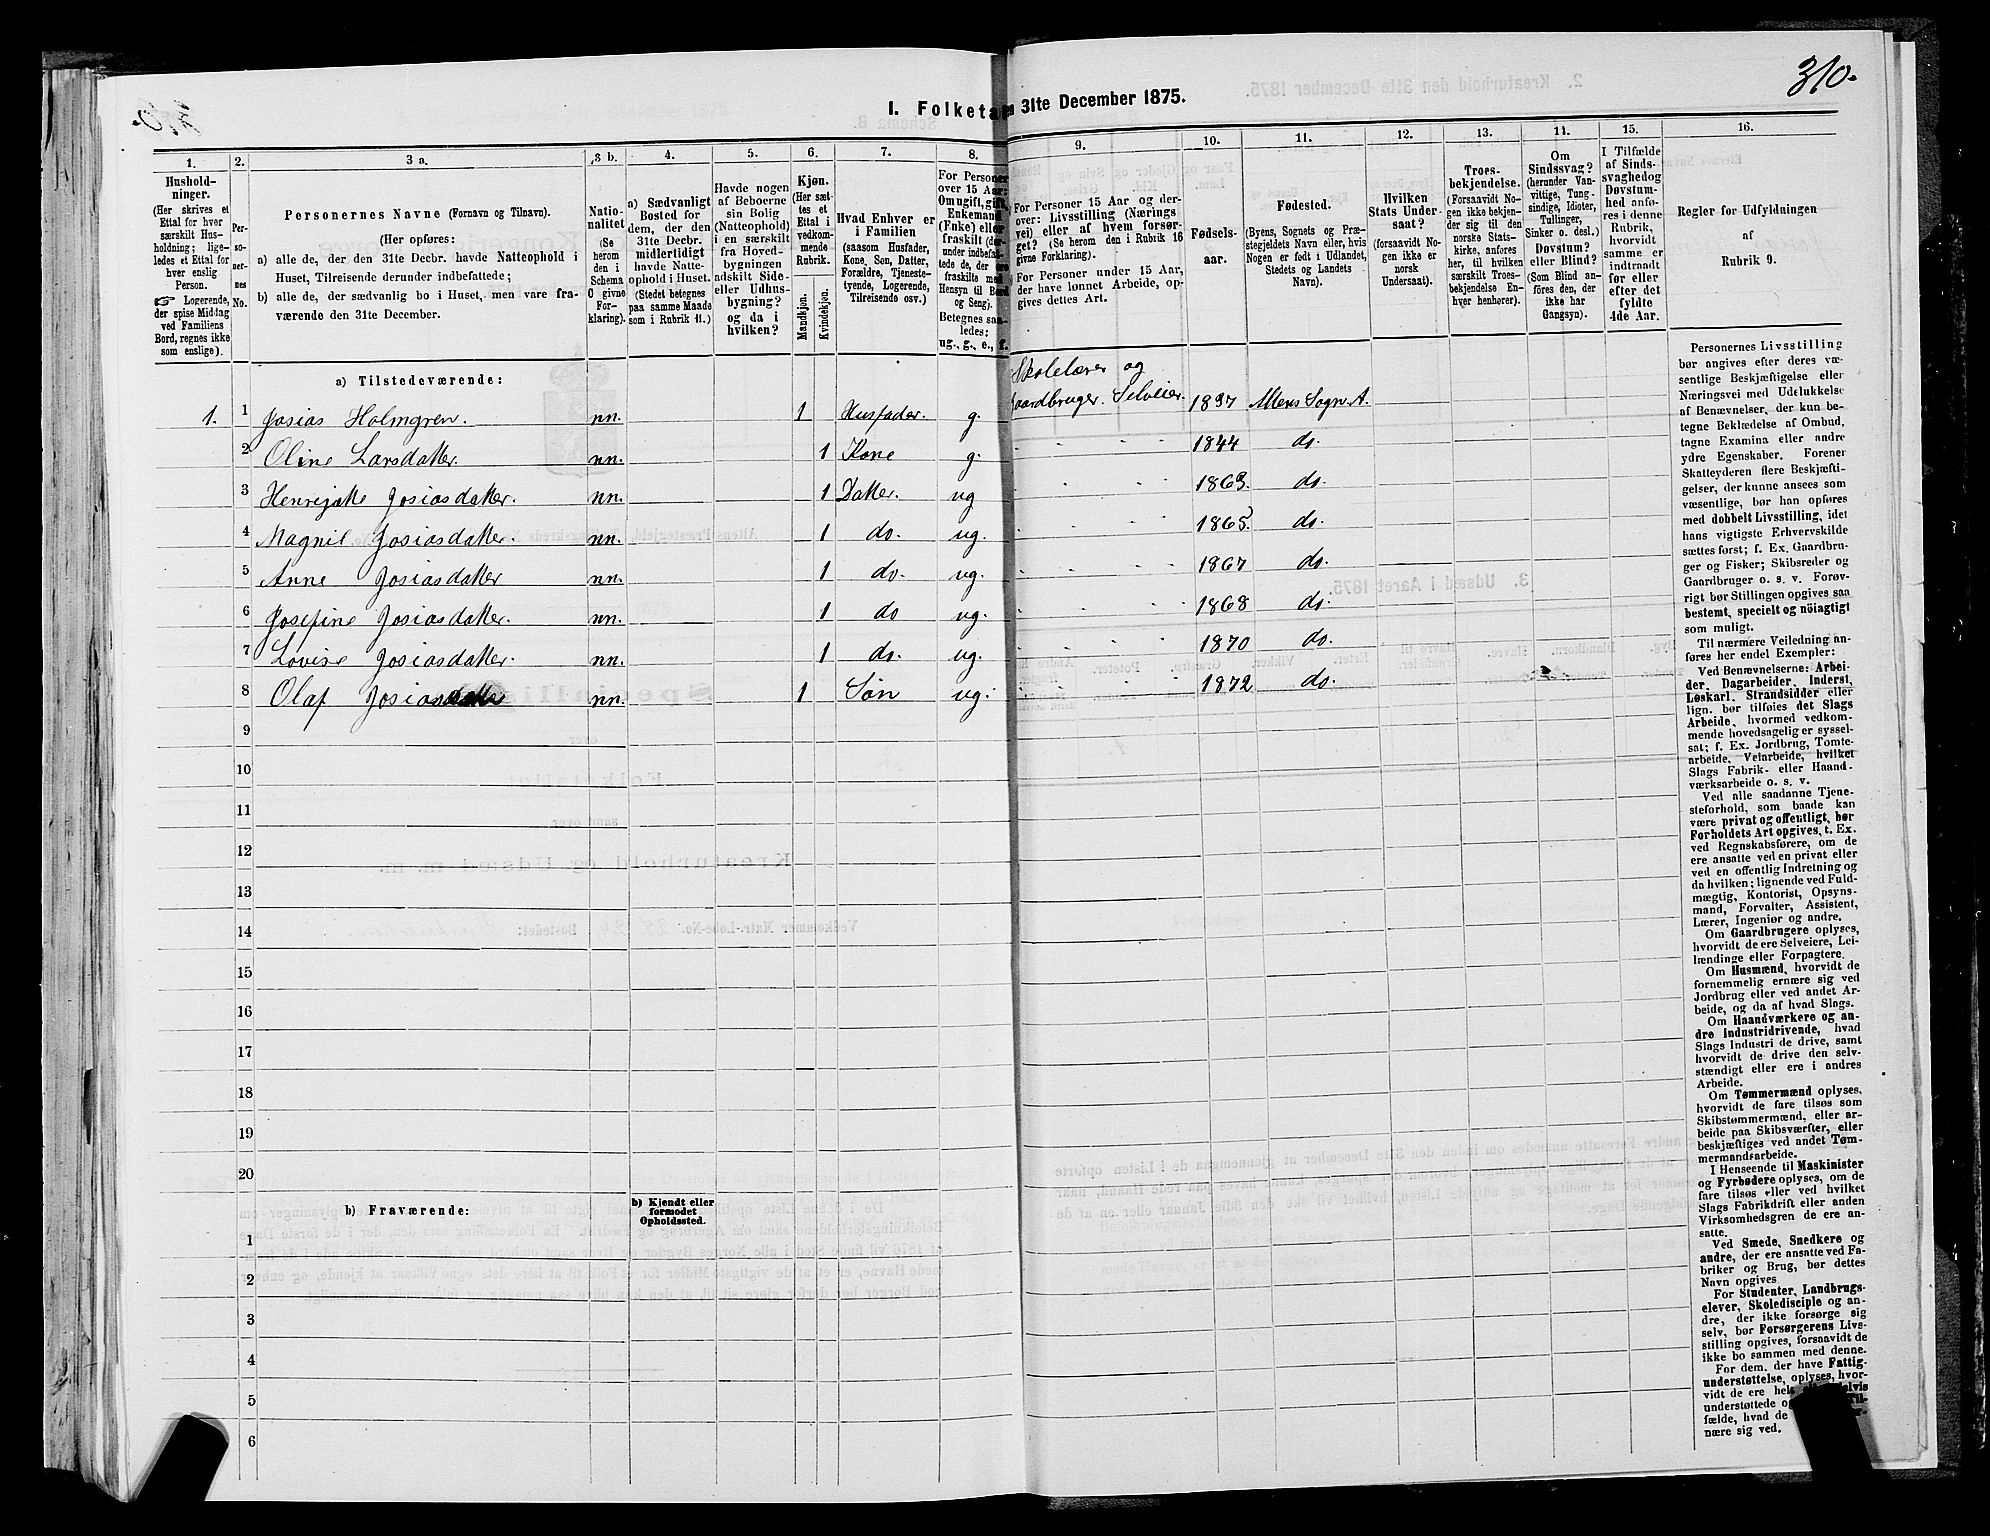 310.
I. Folketa 31te December 1875.
1. 2. 3 a. 3 b. 4. 5. 6. 7. 8. 9. 10. 11. 12. 13. 14. 15. 16.
Hushold-
ninger.
(Her skrives et
Ettal for hver
særskilt Hus-
holdning; lige-
ledes et Ettal for
hver enslig
Person.
☞ Logerende,
der spise Middag
ved Familiens
Bord, regnes ikke
som enslige).
Per-
so-
ner-
nes
No.
Personernes Navne (Fornavn og Tilnavn).
(Her opføres:
a) alle de, der den 31te Decbr. havde Natteophold i
Huset, Tilreisende derunder indbefattede;
b) alle de, der sædvanlig bo i Huset, men vare fra-
værende den 31te December.
Natio-
nalitet
(Se
herom
den i
Schema
0 givne
For-
klaring).
a) Sædvanligt
Bosted for
dem, der den
31te Decbr.
midlertidigt
havde Natte-
ophold i Huset.
(Stedet betegnes
paa samme Maade
som i Rubrik 11.)
Havde nogen
af Beboerne
sin Bolig
(Natteophold)
i en særskilt
fra Hoved-
bygningen
adskilt Side-
eller Udhus-
bygning?
og da i
hvilken?
Kjøn.
(Her sæt-
tes et
Ettal i
vedkom-
mende
Rubrik.
Mandkjøn.
Kvindekjøn.
Hvad Enhver er
i Familien
(saasom Husfader,
Kone, Søn, Datter,
Forældre, Tjeneste-
tyende, Logerende,
Tilreisende osv.)
For Personer
over 15 Aar:
Om ugift, gift,
Enkemand
(Enke) eller
fraskilt (der-
under indbefat-
tede de, der ere
fraskilte med
Hensyn til Bord
og Seng).
Betegnes saa-
ledes:
ug., g., e., f.
For Personer 15 Aar og der-
over: Livsstilling (Nærings
vei) eller af hvem forsør-
get? (Se herom den i Rubrik 16
givne Forklaring).
For Personer under 15 Aar,
der have lønnet Arbeide, op-
gives dettes Art.
Fødsels-
aar.
Fødested.
(Byens, Sognets og Præ-
stegjeldets Navn eller, hvis
Nogen er født i Udlandet,
Stedets og Landets
Navn).
Hvilken
Stats Under-
saat?
(forsaavidt No-
gen ikke er
norsk
Undersaat).
Troes-
bekjendelse.
(Forsaavidt No-
gen ikke bekjen-
der sig til den
norske Stats-
kirke, anføres
her, til hvilken
særskilt Troes-
bekjendelse En-
hver henhører).
Om
Sindssvag?
(herunder Van-
vittige, Tung-
sindige, Idioter,
Tullinger,
Sinker o. desl.)
Døvstum?
eller Blind?
(Som Blind an-
føres den, der
ikke har
Gangsyn).
I Tilfælde
af Sinds-
svaghed og
Døvstum-
hed anfø-
res i denne
Rubrik,
hvorvidt
samme er
indtraadt
før eller
efter det
fyldte
4de Aar.
Regler for Udfyldningen
af
Rubrik 9.
a) Tilstedeværende:
Skolelærer og
1. 1 Josias Holmgren. nn. 1 Husfader. g. Gaardbruger. Selveier. 1837 Altens Sogn. A.
2 Oline Larsdatter. nn. 1 Kone g. 1844 do.
3 Henrijette Josiasdatter. nn. 1 Datter. ug 1863. do.
4 Magnil Josiasdatter. nn. 1 do. ug. 1865. do.
5 Anne Josiasdatter nn. 1 do. ug. 1867 do.
6 Josefine Josiasdatter. nn. 1 do ug. 1868 do.
7 Lovise Josiasdatter. nn. 1 do. ug. 1870 do.
8 Olaf Josias nn. 1 Søn ug. 1872 do.
9
10
11
12
13
14
15
16
17
18
19
20
b) Fraværende:
b) Kjendt eller
formodet
Opholdssted.
1
2
3
4
5
6
Personernes Livsstilling
bør angives efter deres væ-
sentlige Beskjæftigelse eller
Næringsvei med Udelukkelse
af Benævnelser, der kun be-
tegne Beklædelse af Ombud,
tagne Examina eller andre
ydre Egenskaber. Forener
Skatteyderen flere Beskjæfti-
gelser, der kunne ansees som
væsentlige, bør han opføres
med dobbelt Livsstilling, idet
hans vigtigste Erhvervskilde
sættes først; f. Ex. Gaardbru-
ger og Fisker; Skibsreder og
Gaardbruger o. s. v. Forøv-
rigt bør Stillingen opgives saa
bestemt, specielt og nöiagtigt
som muligt.
Til nærmere Veiledning an-
føres her endel Exempler:
Ved Benævnelserne: Arbei-
der, Dagarbeider, Inderst,
Løskarl, Strandsidder eller
lign. bør tilføies det Slags
Arbeide, hvormed vedkom-
mende hovedsagelig er syssel-
sat; f. Ex. Jordbrug, Tomte-
arbeide, Veiarbeide, hvilket
Slags Fabrik- eller Haand-
værksarbeide o. s. v.
Ved alle saadanne Tjene-
steforhold, som baade kan
være privat og offentligt, bør
Forholdets Art opgives, t. Ex.
ved Regnskabsførere, om de
ere ansatte ved en privat eller
ved en offentlig Indretning og
da hvilken; lignende ved Fuld-
mægtig, Kontorist, Opsyns-
mand, Forvalter, Assistent,
Lærer, Ingeniør og andre.
Om Gaardbrugere oplyses,
hvorvidt de ere Selveiere, Lei-
lændinge eller Forpagtere.
Om Husmænd, hvorvidt de
fornemmelig ernære sig ved
Jordbrug eller ved andet Ar-
beide, og da af hvad Slags.
Om Haandværkere og an-
dre Industridrivende, hvad
Slags Industri de drive, samt
hvorvidt de drive den selv-
stændigt eller ere i andres
Arbeide.
Om Tømmermænd oplyses,
hvorvidt de fare tilsøs som
Skibstømmermænd, eller ar-
beide paa Skibsværfter, eller
beskjæftiges ved andet Tøm-
mermandsarbeide.
I Henseende til Maskinister
og Fyrbødere oplyses, om de
fare tilsøs eller ved hvilket
Slags Fabrikdrift eller anden
Virksomhedsgren de ere an-
satte.
Ved Smede, Snedkere og
andre, der ere ansatte ved Fa-
briker og Brug, bør dettes
Navn opgives.
For Studenter, Landbrugs-
elever, Skoledisciple og an-
dre, der ikke forsørge sig
selv, bør Forsørgerens Livs-
stilling opgives, forsaavidt de
ikke bo sammen med denne.
For dem, der have Fattig-
understøttelse, oplyses, hvor-
vidt de ere hel
understøttede o
fælde, hvad de
nære sig ved.